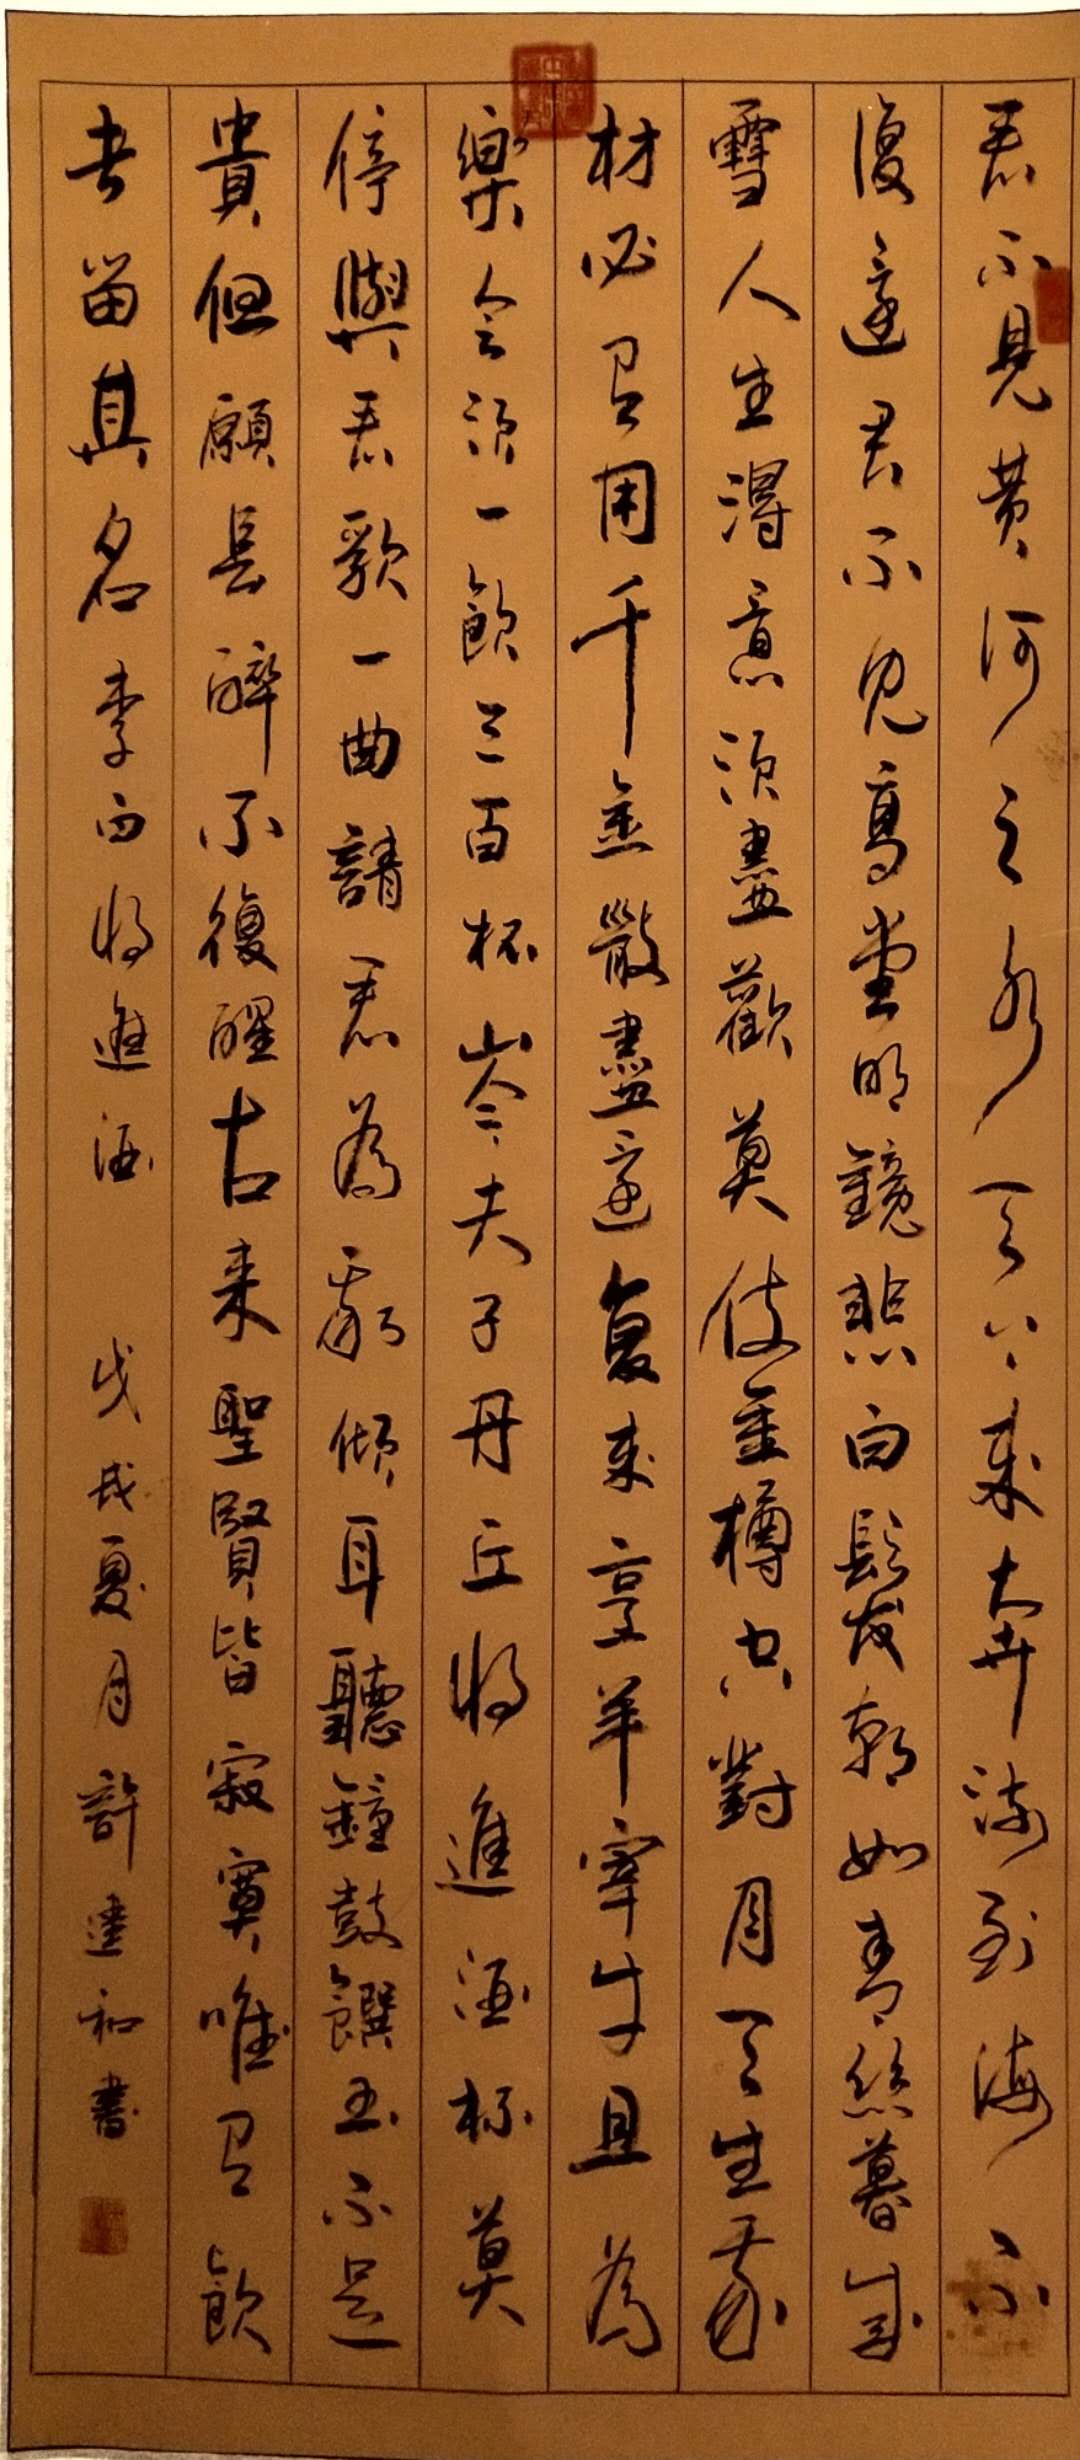 君不見黄河之水天上來奔流到海不
復還君不見高堂明鏡悲白髮朝如青絲暮成
雪人生得意須盡歡莫使金樽空對月天生我
材必有用千金散盡還復來烹羊宰牛且為
樂會須一飲三百杯岑夫子丹丘将進酒杯莫
停與君歌一曲請君為我傾耳聽鐘鼓饌玉不足
貴但願長醉不復醒古來聖賢皆寂寞唯有飲
者留其名李白将進酒 戊戌夏月許建和書